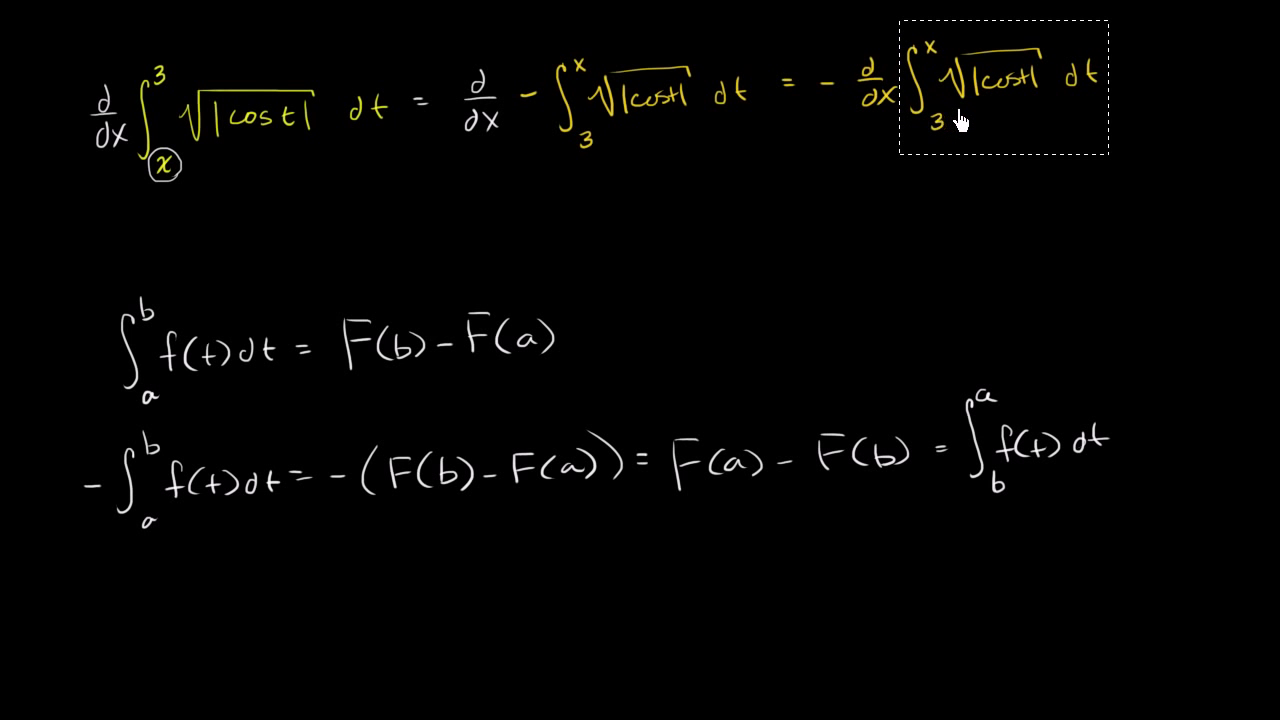 d/dx ∫_x^3 √|cos t| dt = d/dx - ∫_3^x √|cost| dt = - d/dx ∫_3^x √|cost| dt
∫_a^b f(t)dt = F(b) - F(a)
- ∫_a^b f(t)dt = -(F(b) - F(a)) = F(a) - F(b) = ∫_b^a f(t) dt